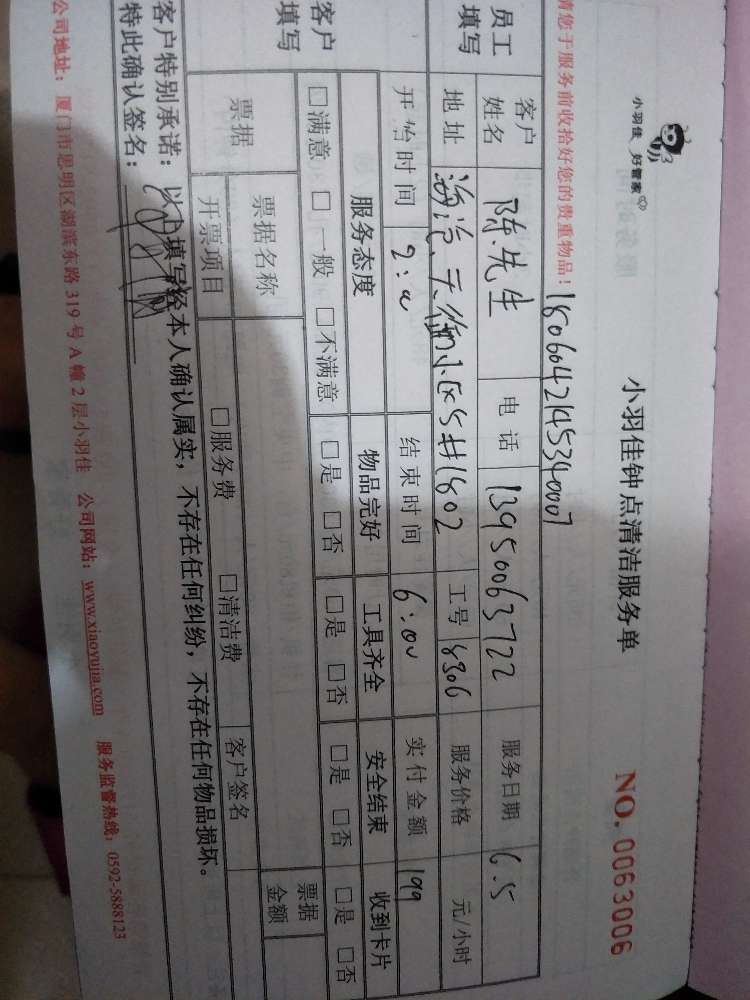 小羽佳 好管家
小羽佳钟点清洁服务单
NO. 0063006
请您于服务前收拾好您的贵重物品！
1806042145340007
员工填写
客户姓名 陈先生 电话 13950063722 服务日期 6.5
地址 海沧天御小区5#1802 工号 8306 服务价格 元/小时
开始时间 2:00 结束时间 6:00 实付金额 199
客户填写
服务态度 物品完好 工具齐全 安全结束 收到卡片
□满意 □一般 □不满意 □是 □否 □是 □否 □是 □否 □是 □否
票据 票据名称 票据金额
开票项目 □服务费 □清洁费 客户签名
客户特别承诺：以上填写经本人确认属实，不存在任何纠纷，不存在任何物品损坏。
特此确认签名：
公司地址：厦门市思明区湖滨东路319号A幢2层小羽佳 公司网站：www.xiaoyujia.com 服务监督热线：0592-5888123